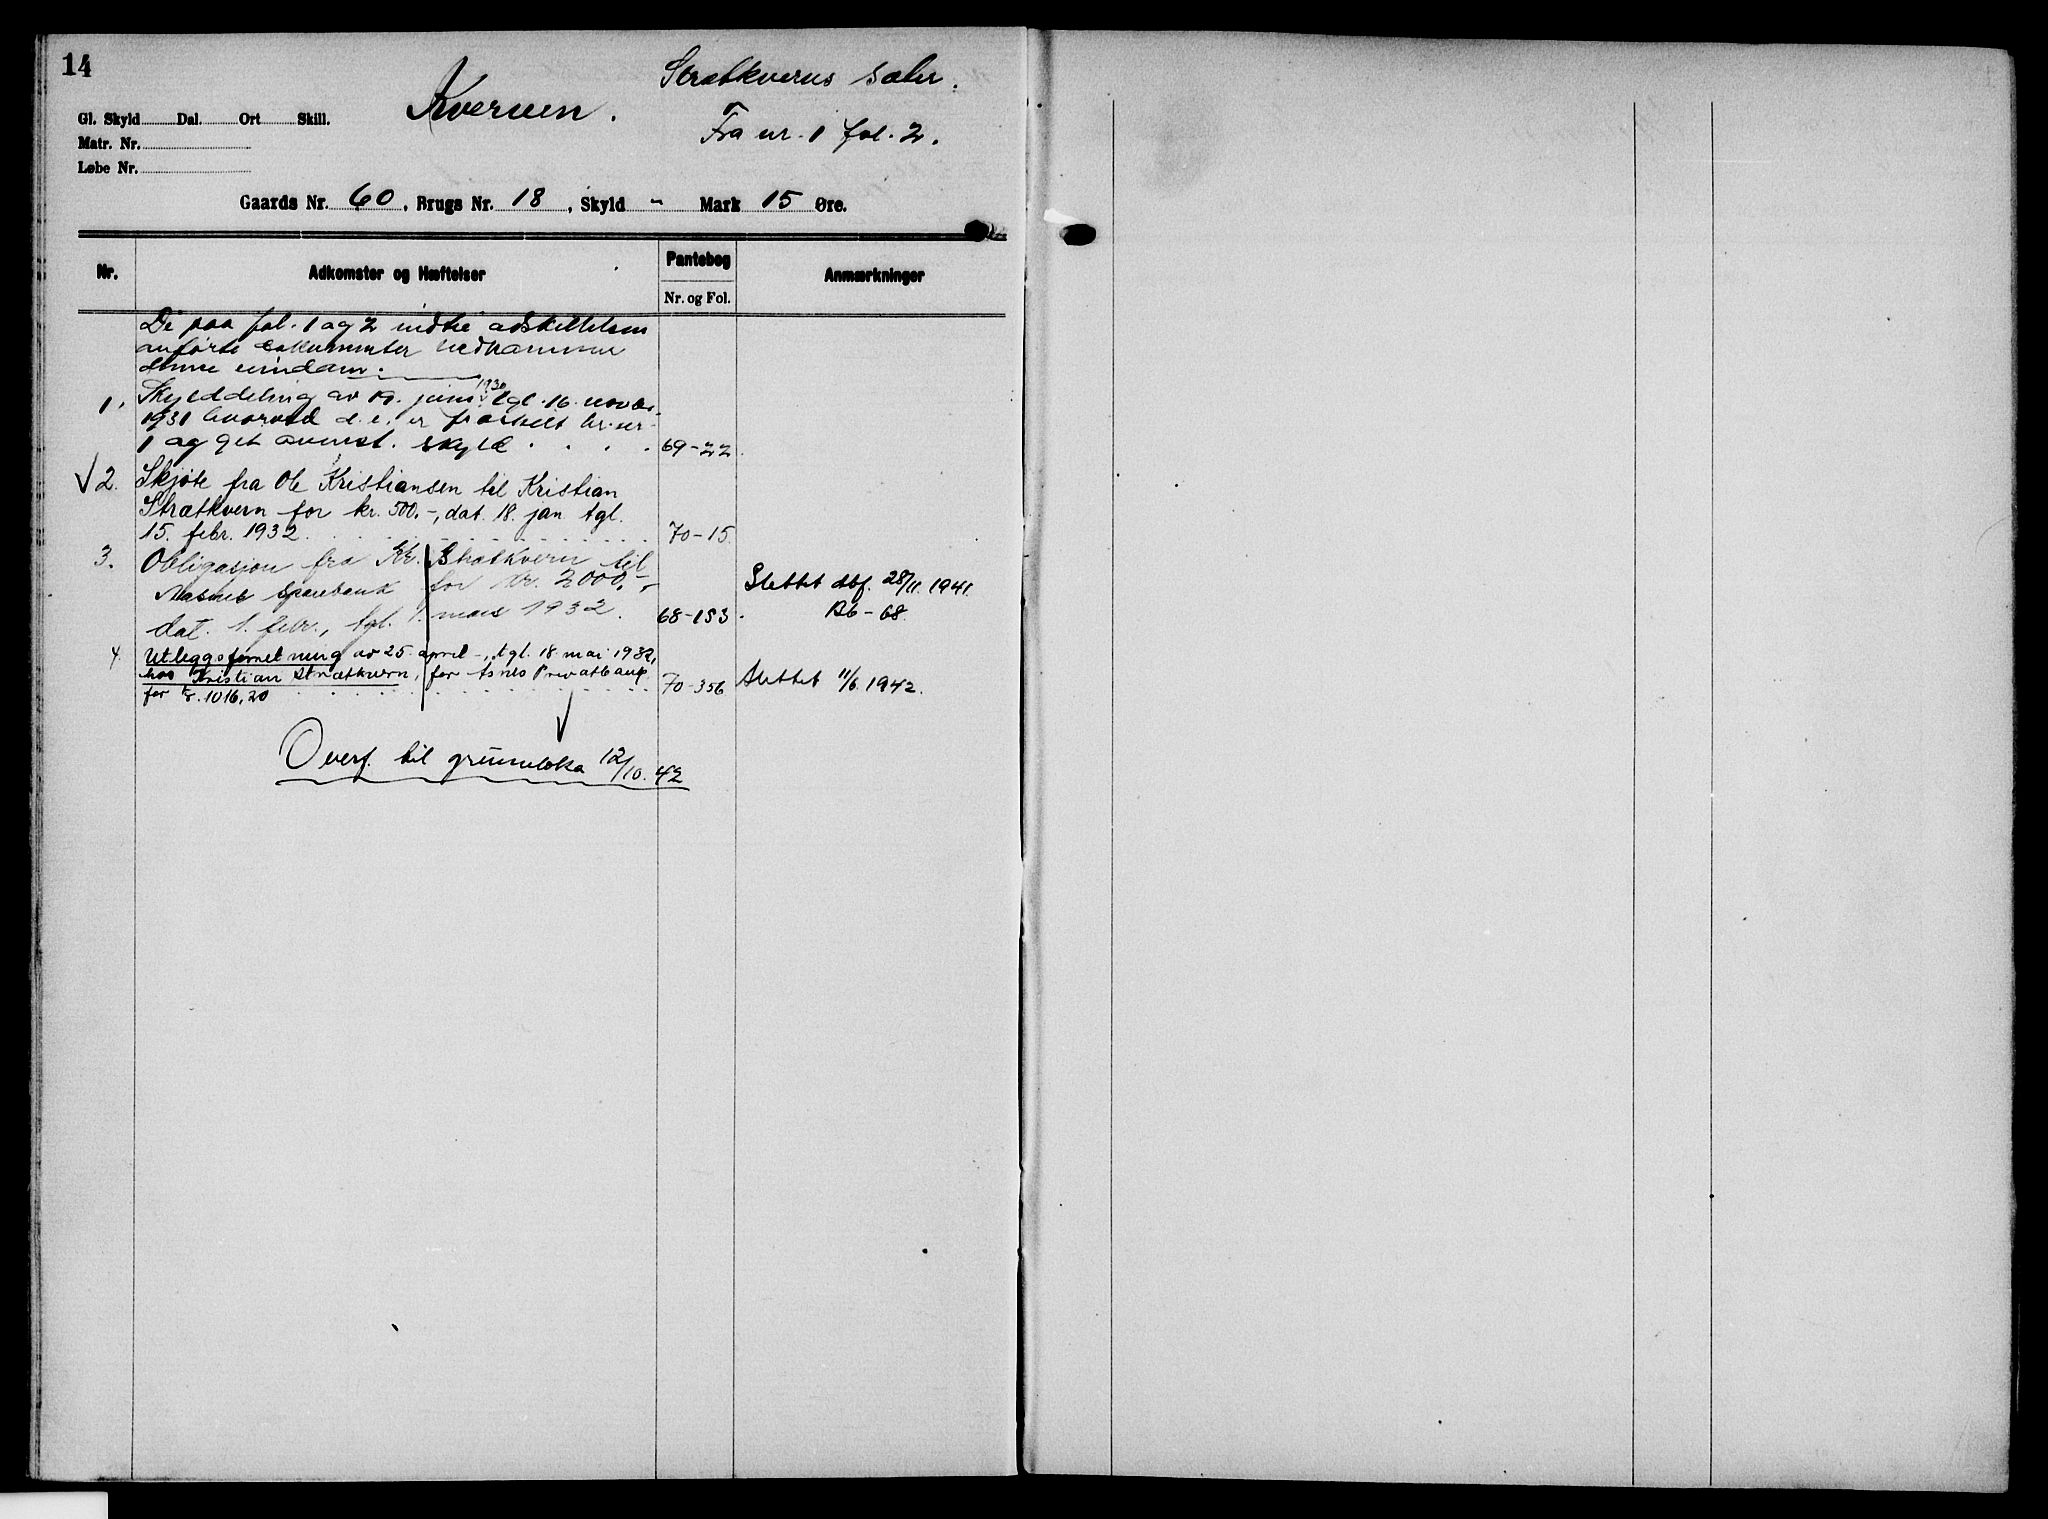 14
Kvernen.
Strætkverns sæter.
Fra nr. 1 fol. 2.
Gl. Skyld Dal. Ort Skill.
Matr. Nr.
Løbe Nr.
Gaards Nr. 60, Brugs Nr. 18, Skyld - Mark 15 Øre.
Nr. Adkomster og Hæftelser Pantebog Anmærkninger
Nr. og Fol.
De paa fol. 1 og 2 indtil adskillelsen
anførte dokumenter vedkommer
denne eiendom.
1. Skylddeling av 19. juni 1930 tgl. 16. novbr.
1931 hvorved d. e. er fraskilt br. nr.
1 og git avenst. skyld . . . . 69-22
2. Skjøte fra Ole Kristiansen til Kristian
Strætkvern for kr. 500,-, dat. 18. jan. tgl.
15. febr. 1932 70-15.
3. Obligasjon fra Kr. Strætkvern til
Aasnes Sparebank for kr. 2000,- Slettet dbf. 28/11. 1941.
dat. 1. febr., tgl. 1. mars 1932. 68-153. B6-68.
4. Utleggsforretning av 25. april -, tgl. 18. mai 1932,
hos Kristian Strætkvern, for Åsnes Privatbank
for kr. 1016,20 70-356 Slettet 11/6. 1942.
Overf. til grunnboka 12/10. 42